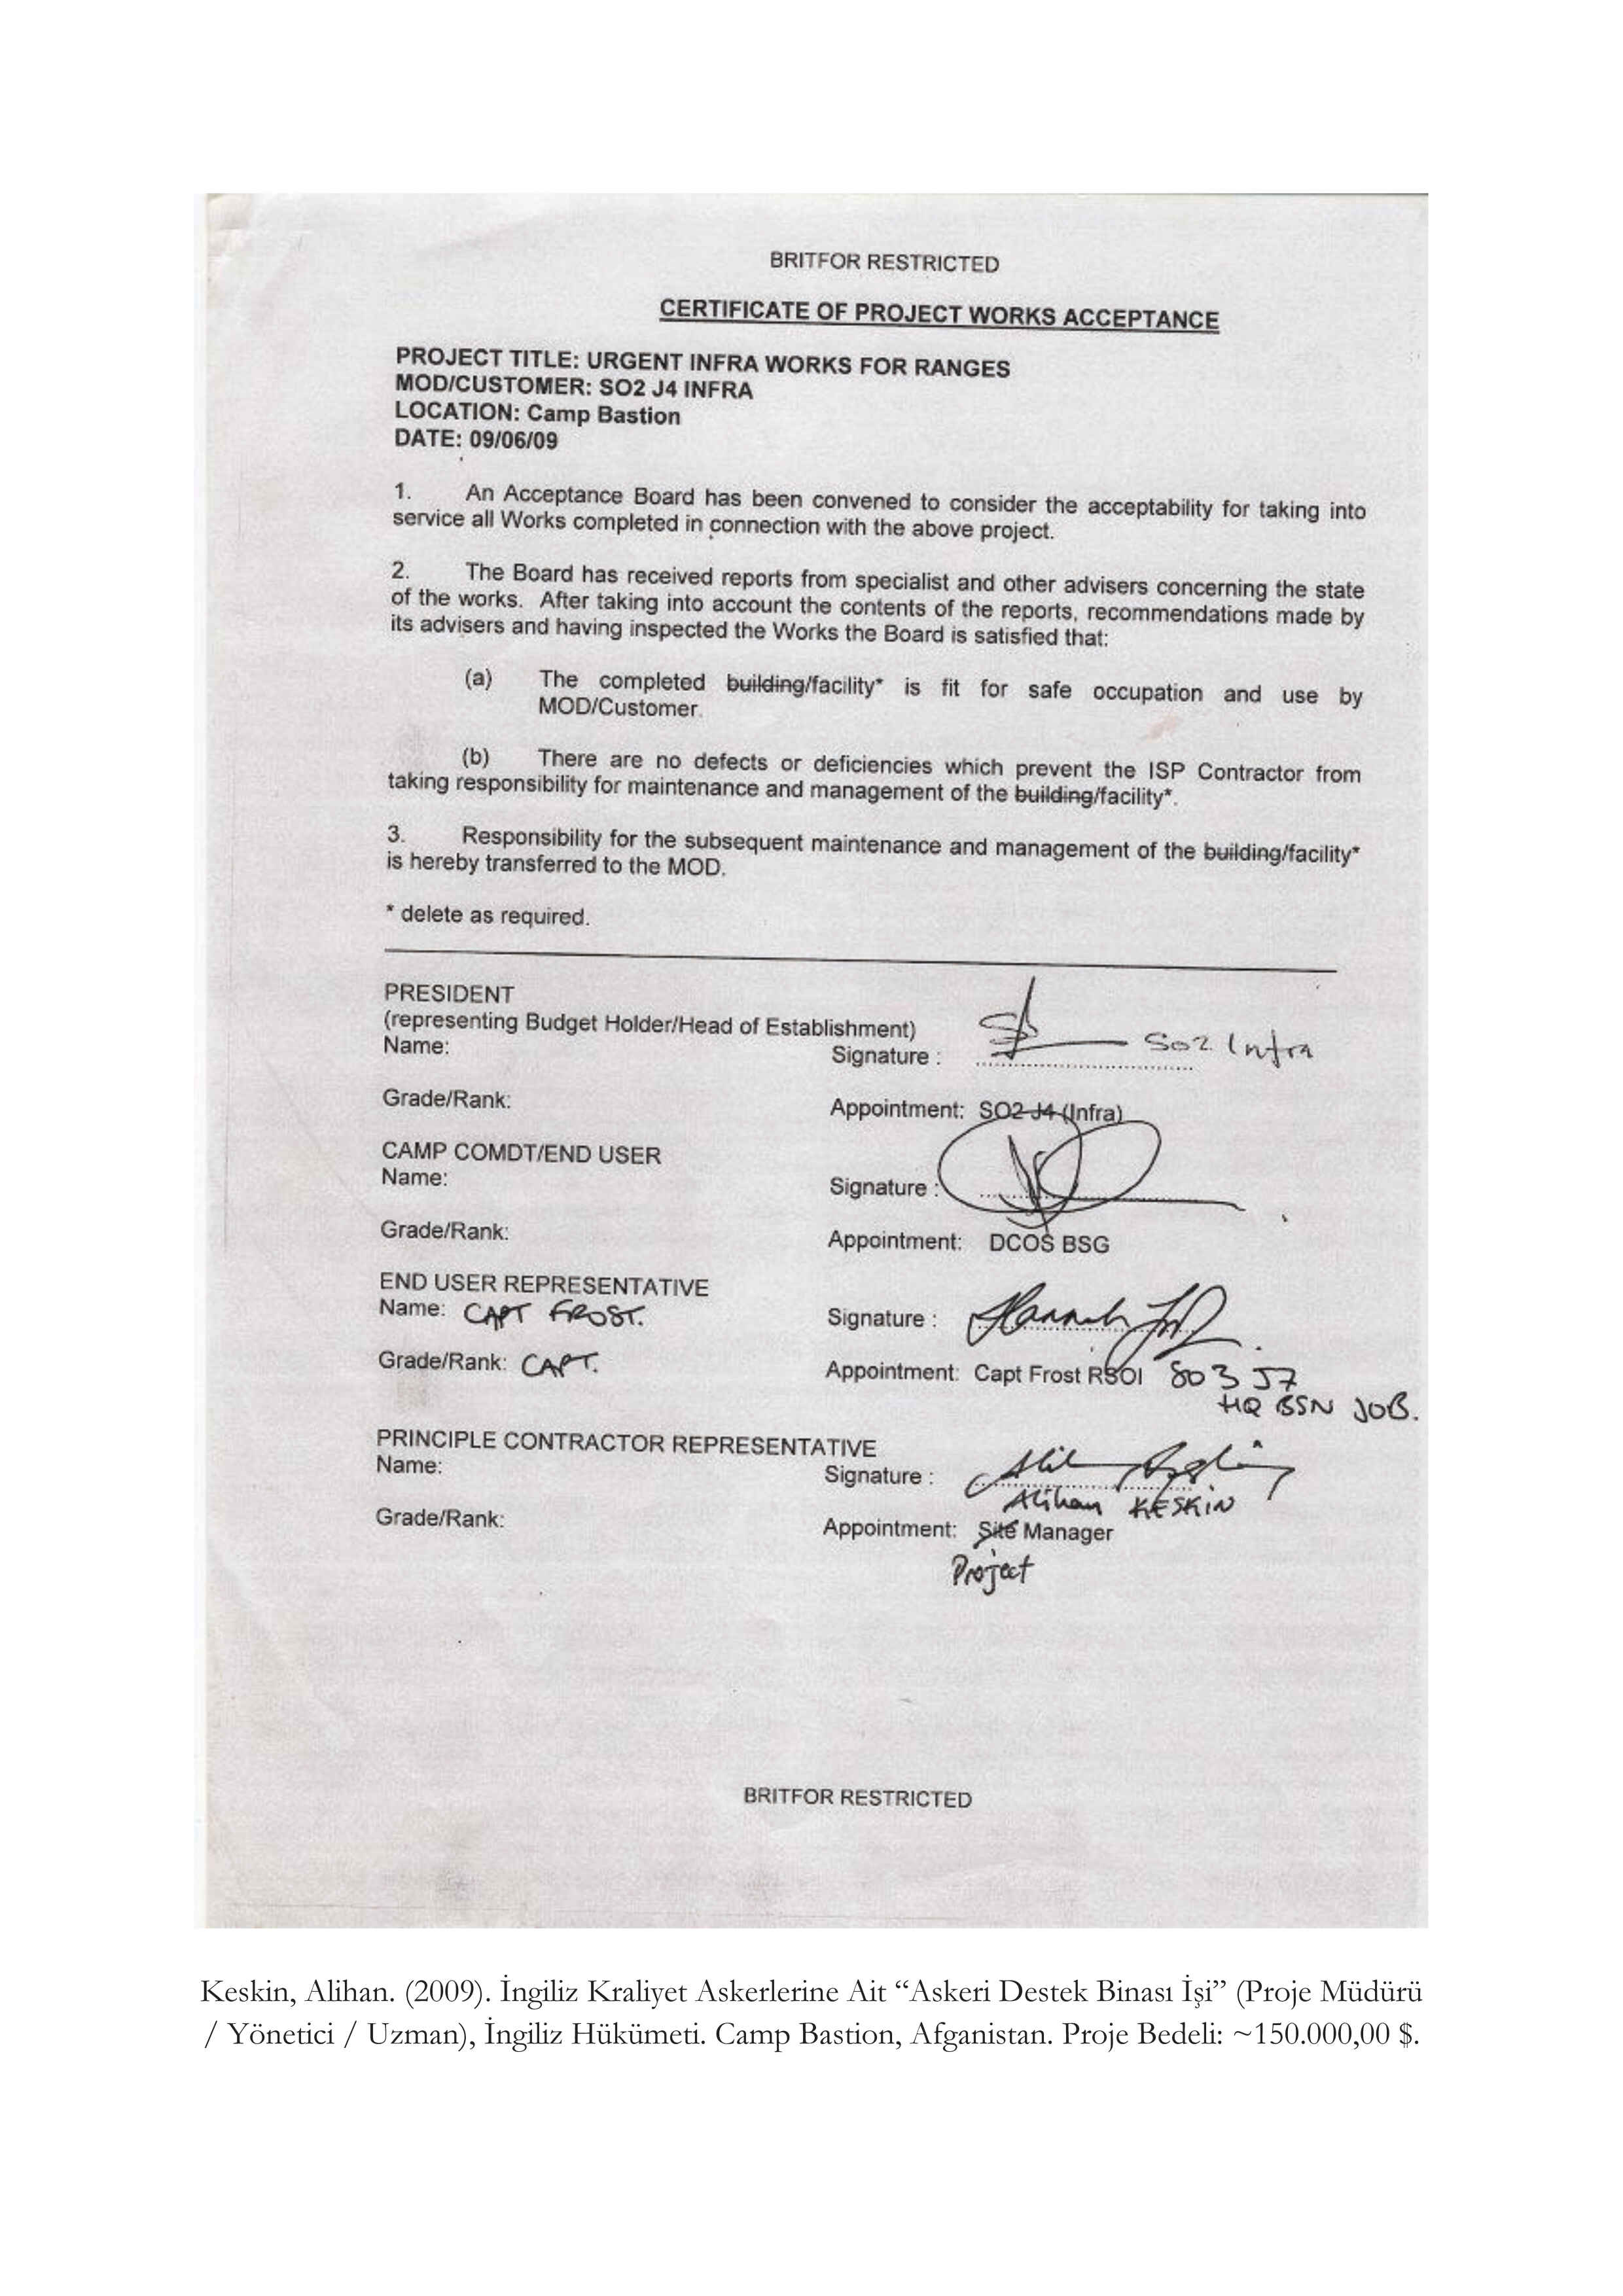 BRITFOR RESTRICTED
CERTIFICATE OF PROJECT WORKS ACCEPTANCE
PROJECT TITLE: URGENT INFRA WORKS FOR RANGES
MOD/CUSTOMER: SO2 J4 INFRA
LOCATION: Camp Bastion
DATE: 09/06/09
1. An Acceptance Board has been convened to consider the acceptability for taking into
service all Works completed in connection with the above project.
2. The Board has received reports from specialist and other advisers concerning the state
of the works. After taking into account the contents of the reports, recommendations made by
its advisers and having inspected the Works the Board is satisfied that:
(a) The completed building/facility* is fit for safe occupation and use by
MOD/Customer.
(b) There are no defects or deficiencies which prevent the ISP Contractor from
taking responsibility for maintenance and management of the building/facility*.
3. Responsibility for the subsequent maintenance and management of the building/facility*
is hereby transferred to the MOD.
* delete as required.
PRESIDENT
(representing Budget Holder/Head of Establishment)
Name: Signature : SO2 Infra
Grade/Rank: Appointment: SO2 J4 (Infra)
CAMP COMDT/END USER
Name: Signature :
Grade/Rank: Appointment: DCOS BSG
END USER REPRESENTATIVE
Name: CAPT FROST. Signature :
Grade/Rank: CAPT. Appointment: Capt Frost RSOI SO3 J7
HQ BSN JOB.
PRINCIPLE CONTRACTOR REPRESENTATIVE
Name: Signature :
Alihan KESKIN
Grade/Rank: Appointment: Site Manager
Project
BRITFOR RESTRICTED
Keskin, Alihan. (2009). İngiliz Kraliyet Askerlerine Ait “Askeri Destek Binası İşi” (Proje Müdürü
/ Yönetici / Uzman), İngiliz Hükümeti. Camp Bastion, Afganistan. Proje Bedeli: ~150.000,00 $.